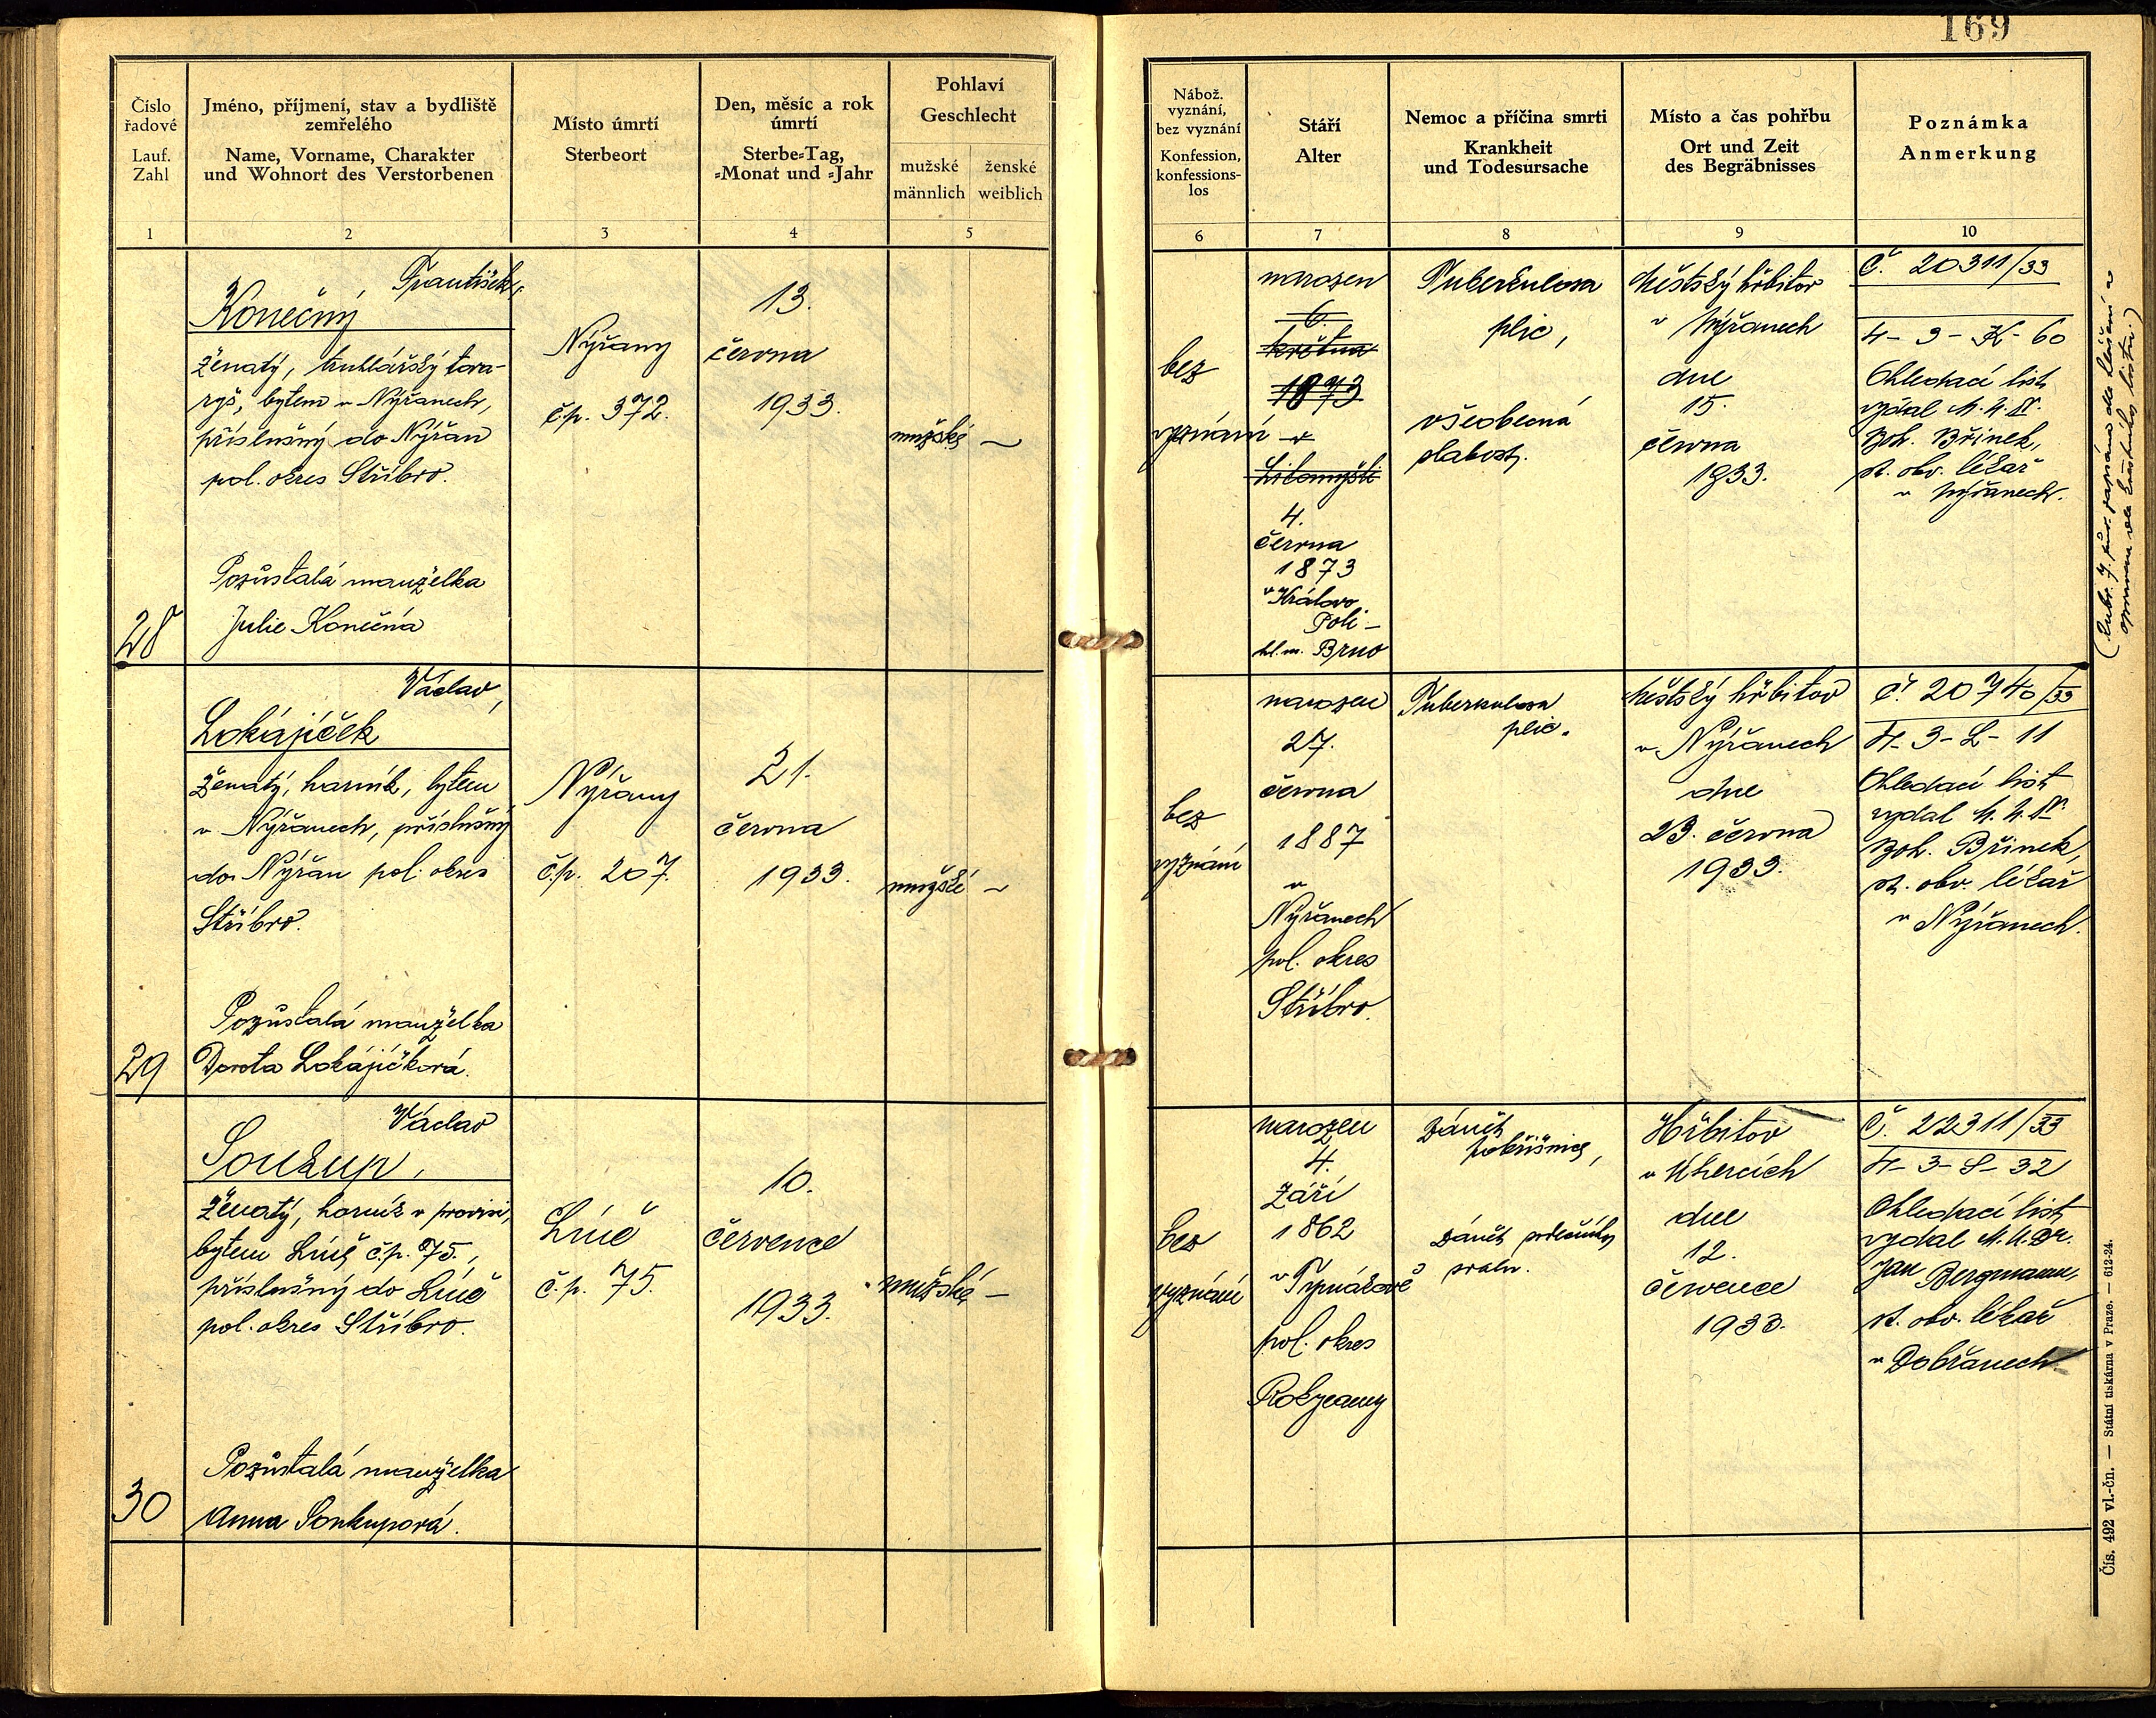 169
Číslo
řadové
Lauf.
Zahl
Jméno, příjmení, stav a bydliště
zemřelého
Name, Vorname, Charakter
und Wohnort des Verstorbenen
Místo úmrtí
Sterbeort
Den, měsíc a rok
úmrtí
Sterbe-Tag,
-Monat und -Jahr
Pohlaví
Geschlecht
mužské
männlich
ženské
weiblich
Nábož.
vyznání,
bez vyznání
Konfession,
konfessions-
los
Stáří
Alter
Nemoc a příčina smrti
Krankheit
und Todesursache
Místo a čas pohřbu
Ort und Zeit
des Begräbnisses
Poznámka
Anmerkung
1
2
3
4
5
6
7
8
9
10
28
František,
Konečný
ženatý, truhlářský tova-
ryš, bytem v Nýřanech,
příslušný do Nýřan
pol. okres Stříbro.
Pozůstalá manželka
Julie Konečná
Nýřany
č.p. 372.
13.
června
1933.
mužské —
bez
vyznání
narozen
6.
května
1873
v
Litomyšli
4.
června
1873
v Královo
Poli –
hl. m. Brno
Tuberkulosa
plic,
všeobecná
slabost.
Městský hřbitov
v Nýřanech
dne
15.
června
1933.
Č. 20311/33
4-3-K-60
Ohledací list
vydal M.U.Dr.
Boh. Břinek,
st. obv. lékař
v Nýřanech.
(Rubr. 7. pův. zapsáno dle hlášení a
opraveno dle křestního listu.)
29
Václav,
Lokajíček
ženatý, horník, bytem
v Nýřanech, příslušný
do Nýřan pol. okres
Stříbro.
Pozůstalá manželka
Dorota Lokajíčková.
Nýřany
č.p. 207.
21.
června
1933.
mužské —
bez
vyznání
narozen
27.
června
1887
v
Nýřanech
pol. okres
Stříbro.
Tuberkulosa
plic.
Městský hřbitov
v Nýřanech
dne
23. června
1933.
Č. 20740/33
4-3-L-11
Ohledací list
vydal M.U.Dr.
Boh. Břinek,
st. obv. lékař
v Nýřanech.
30
Václav
Soukup,
ženatý, horník v provisi,
bytem Líně č.p. 75.,
příslušný do Líně
pol. okres Stříbro.
Pozůstalá manželka
Anna Soukupová.
Líně
č.p. 75.
10.
července
1933.
mužské —
bez
vyznání
narozen
4.
září
1862
v Tymákově
pol. okres
Rokycany
Zánět
pobřišnice,
Zánět srdečního
svalu.
Hřbitov
v Úhercích
dne
12.
července
1933.
Č. 22311/33
4-3-S-32
Ohledací list
vydal M.U.Dr.
Jan Bergmann,
st. obv. lékař
v Dobřanech.
Čís. 492 vl.-čn. — Státní tiskárna v Praze. — 612-24.